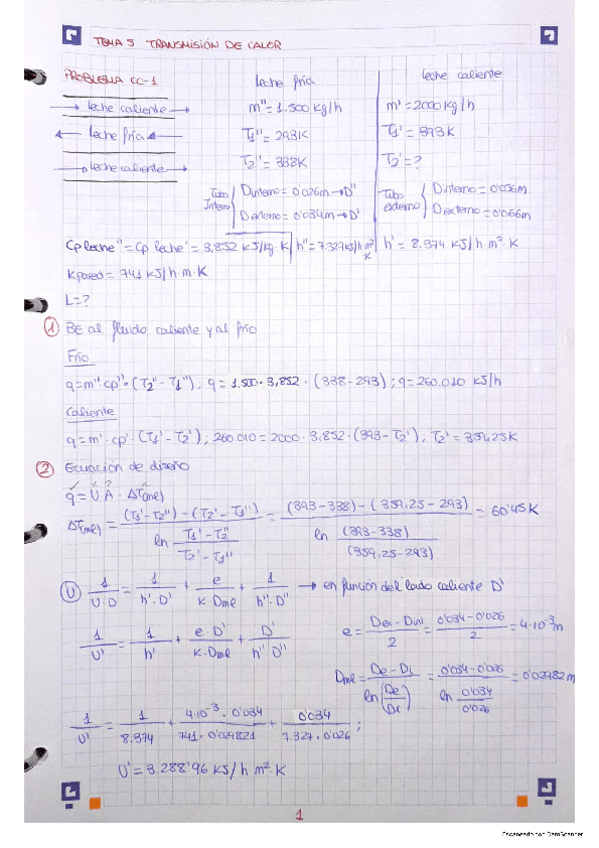 TEMA 5 TRANSMISIÓN DE CALOR
PROBLEMA CC-1
leche fría
leche caliente
→ leche caliente →
← leche fría ←
→ leche caliente →
m'' = 1.500 kg/h
T1'' = 293K
T2'' = 338K
m' = 2000 kg/h
T1' = 393K
T2' = ?
Tubo Interno { Dinterno = 0'026m → D''
Dexterno = 0'034m → D'
Tubo externo { Dinterno = 0'056m
Dexterno = 0'066m
Cp leche'' = Cp leche' = 3,852 kJ/kg·K | h'' = 7.327 kJ/h m²·K | h' = 8.374 kJ/h·m²·K
Kpared = 741 kJ/h·m·K
L = ?
① BE al fluido caliente y al frío
Frío
q = m''·cp''·(T2'' - T1''); q = 1.500 · 3,852 · (338 - 293); q = 260.010 kJ/h
Caliente
q = m'·cp'·(T1' - T2'); 260.010 = 2000 · 3,852 · (393 - T2'); T2' = 359,25K
② Ecuación de diseño
q = U A · ΔT(ml)
ΔT(ml) = (T1' - T2'') - (T2' - T1'') / ln (T1' - T2'' / T2' - T1'') = (393 - 338) - (359,25 - 293) / ln ((393 - 338) / (359,25 - 293)) = 60'45K
Ⓤ 1/U·D = 1/h'·D' + e/K·Dml + 1/h''·D'' → en función del lado caliente D'
1/U' = 1/h' + e·D'/K·Dml + D'/h''·D''
e = Dex - Dint / 2 = 0'034 - 0'026 / 2 = 4·10⁻³m
Dml = De - Di / ln (De/Di) = 0'034 - 0'026 / ln 0'034/0'026 = 0'02982m
1/U' = 1/8.374 + 4·10⁻³ · 0'034 / 741 · 0'029821 + 0'034 / 7.327 · 0'026;
U' = 3.288'96 kJ/h·m²·K
1
Escaneado con CamScanner